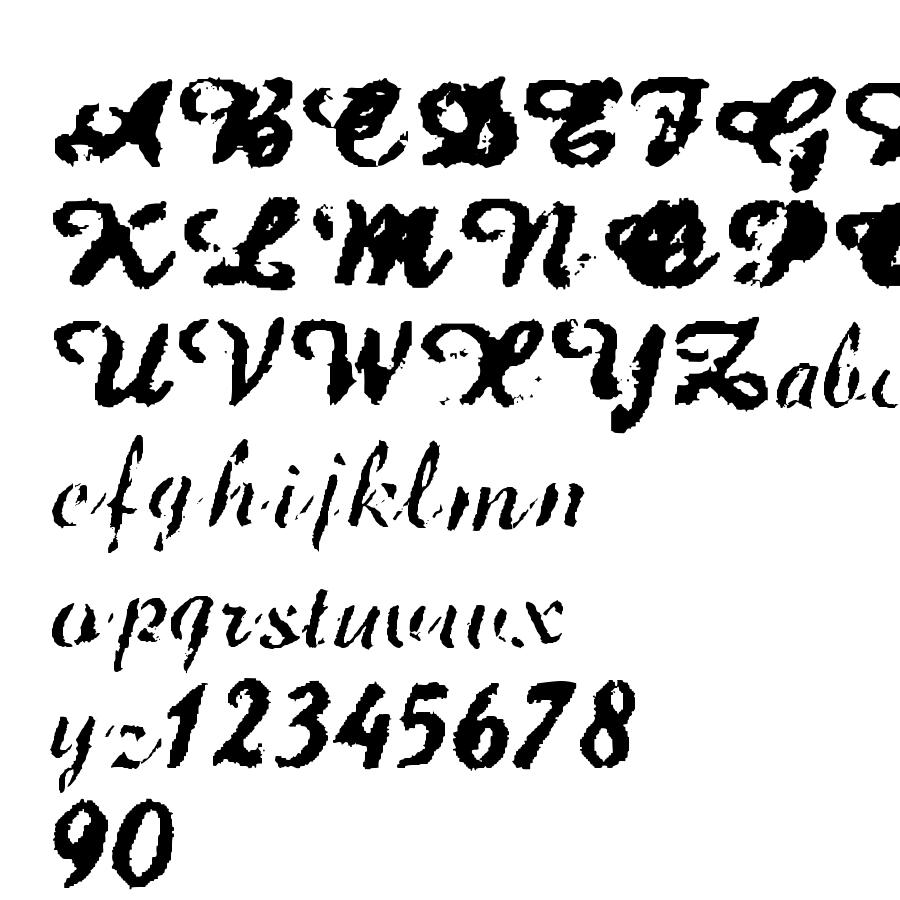 ABCDEFG
KLMNOP
UVWXYZabc
efghijklmn
opqrstuvwx
yz12345678
90